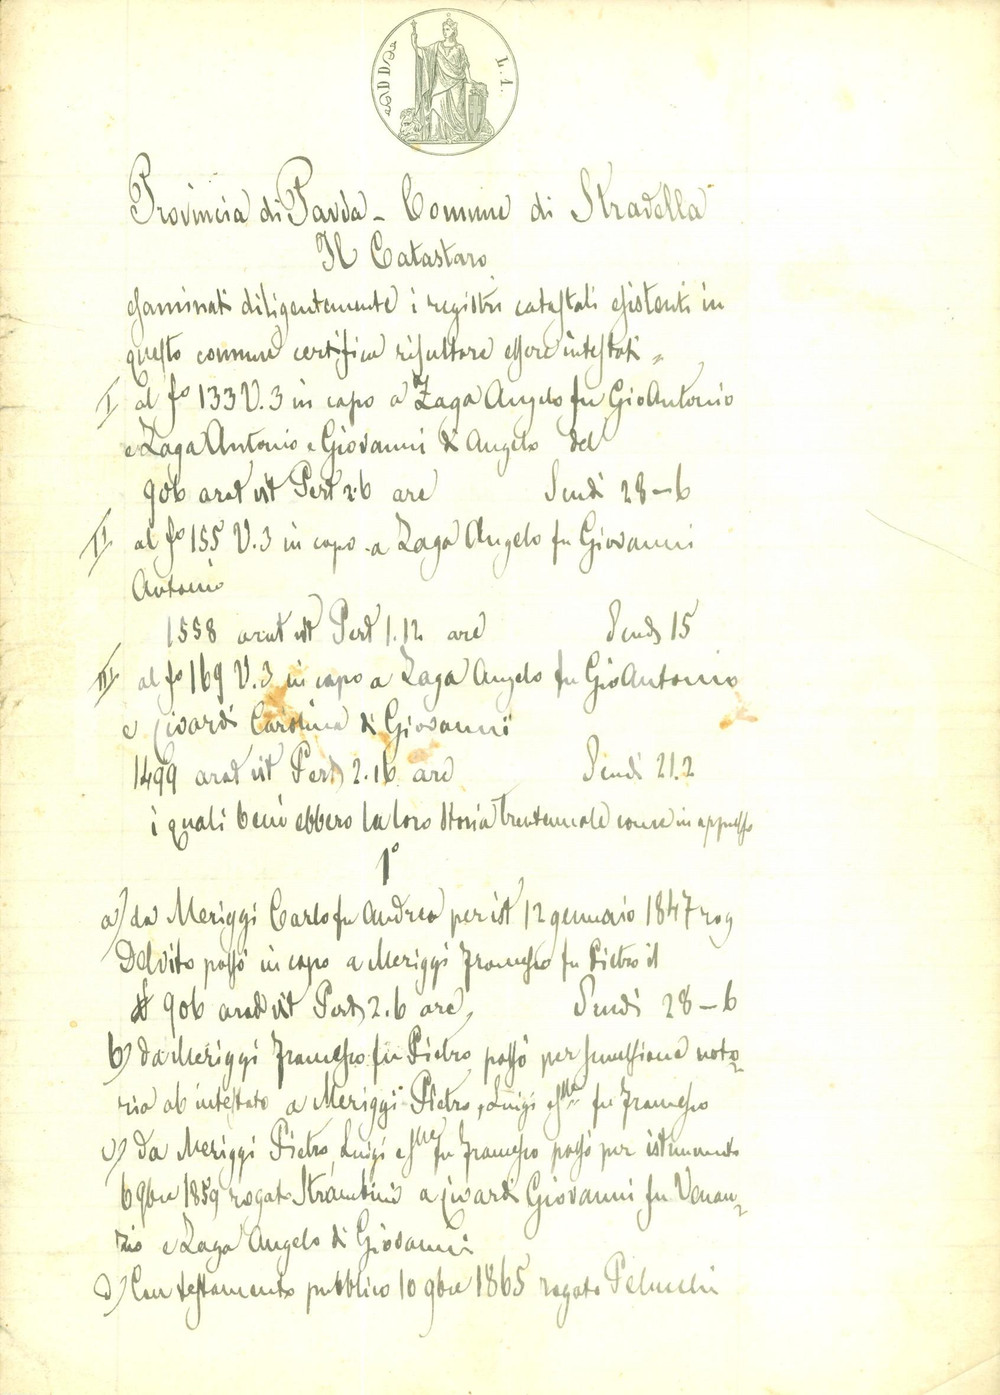 L. 1.
Provincia di Pavia - Comune di Stradella
Il Catastaro
esaminati diligentemente i registri catastali esistenti in
questo comune certifica risultare essere intestati =
I al fo 133 V. 3 in capo a Zaga Angelo fu Gio Antonio
e Zaga Antonio e Giovanni di Angelo del
906 arat vit Pert 2.6 are Scudi 28-6
II al fo 155 V. 3 in capo a Zaga Angelo fu Giovanni
Antonio
1558 arat vit Pert 1.12 are Scudi 15
III al fo 169 V. 3 in capo a Zaga Angelo fu Gio Antonio
e Civardi Carolina di Giovanni
1499 arat vit Pert 2.16 are Scudi 21.2
i quali beni ebbero la loro storia trentennale come in appresso
1°
a) da Meriggi Carlo fu Andrea per ist 12 gennaio 1847 rog
Delvito passò in capo a Meriggi Francesco fu Pietro il
906 arat vit Pert 2.6 are, Scudi 28-6
b) da Meriggi Francesco fu Pietro passò per successione noto=
ria ab intestato a Meriggi Pietro, Luigi e fu Francesco
c) da Meriggi Pietro, Luigi e fu Francesco passò per istrumento
6 9bre 1859 rogato Strambini a Civardi Giovanni fu Venan=
zio e Zaga Angelo di Giovanni
d) Con testamento pubblico 10 9bre 1865 rogato